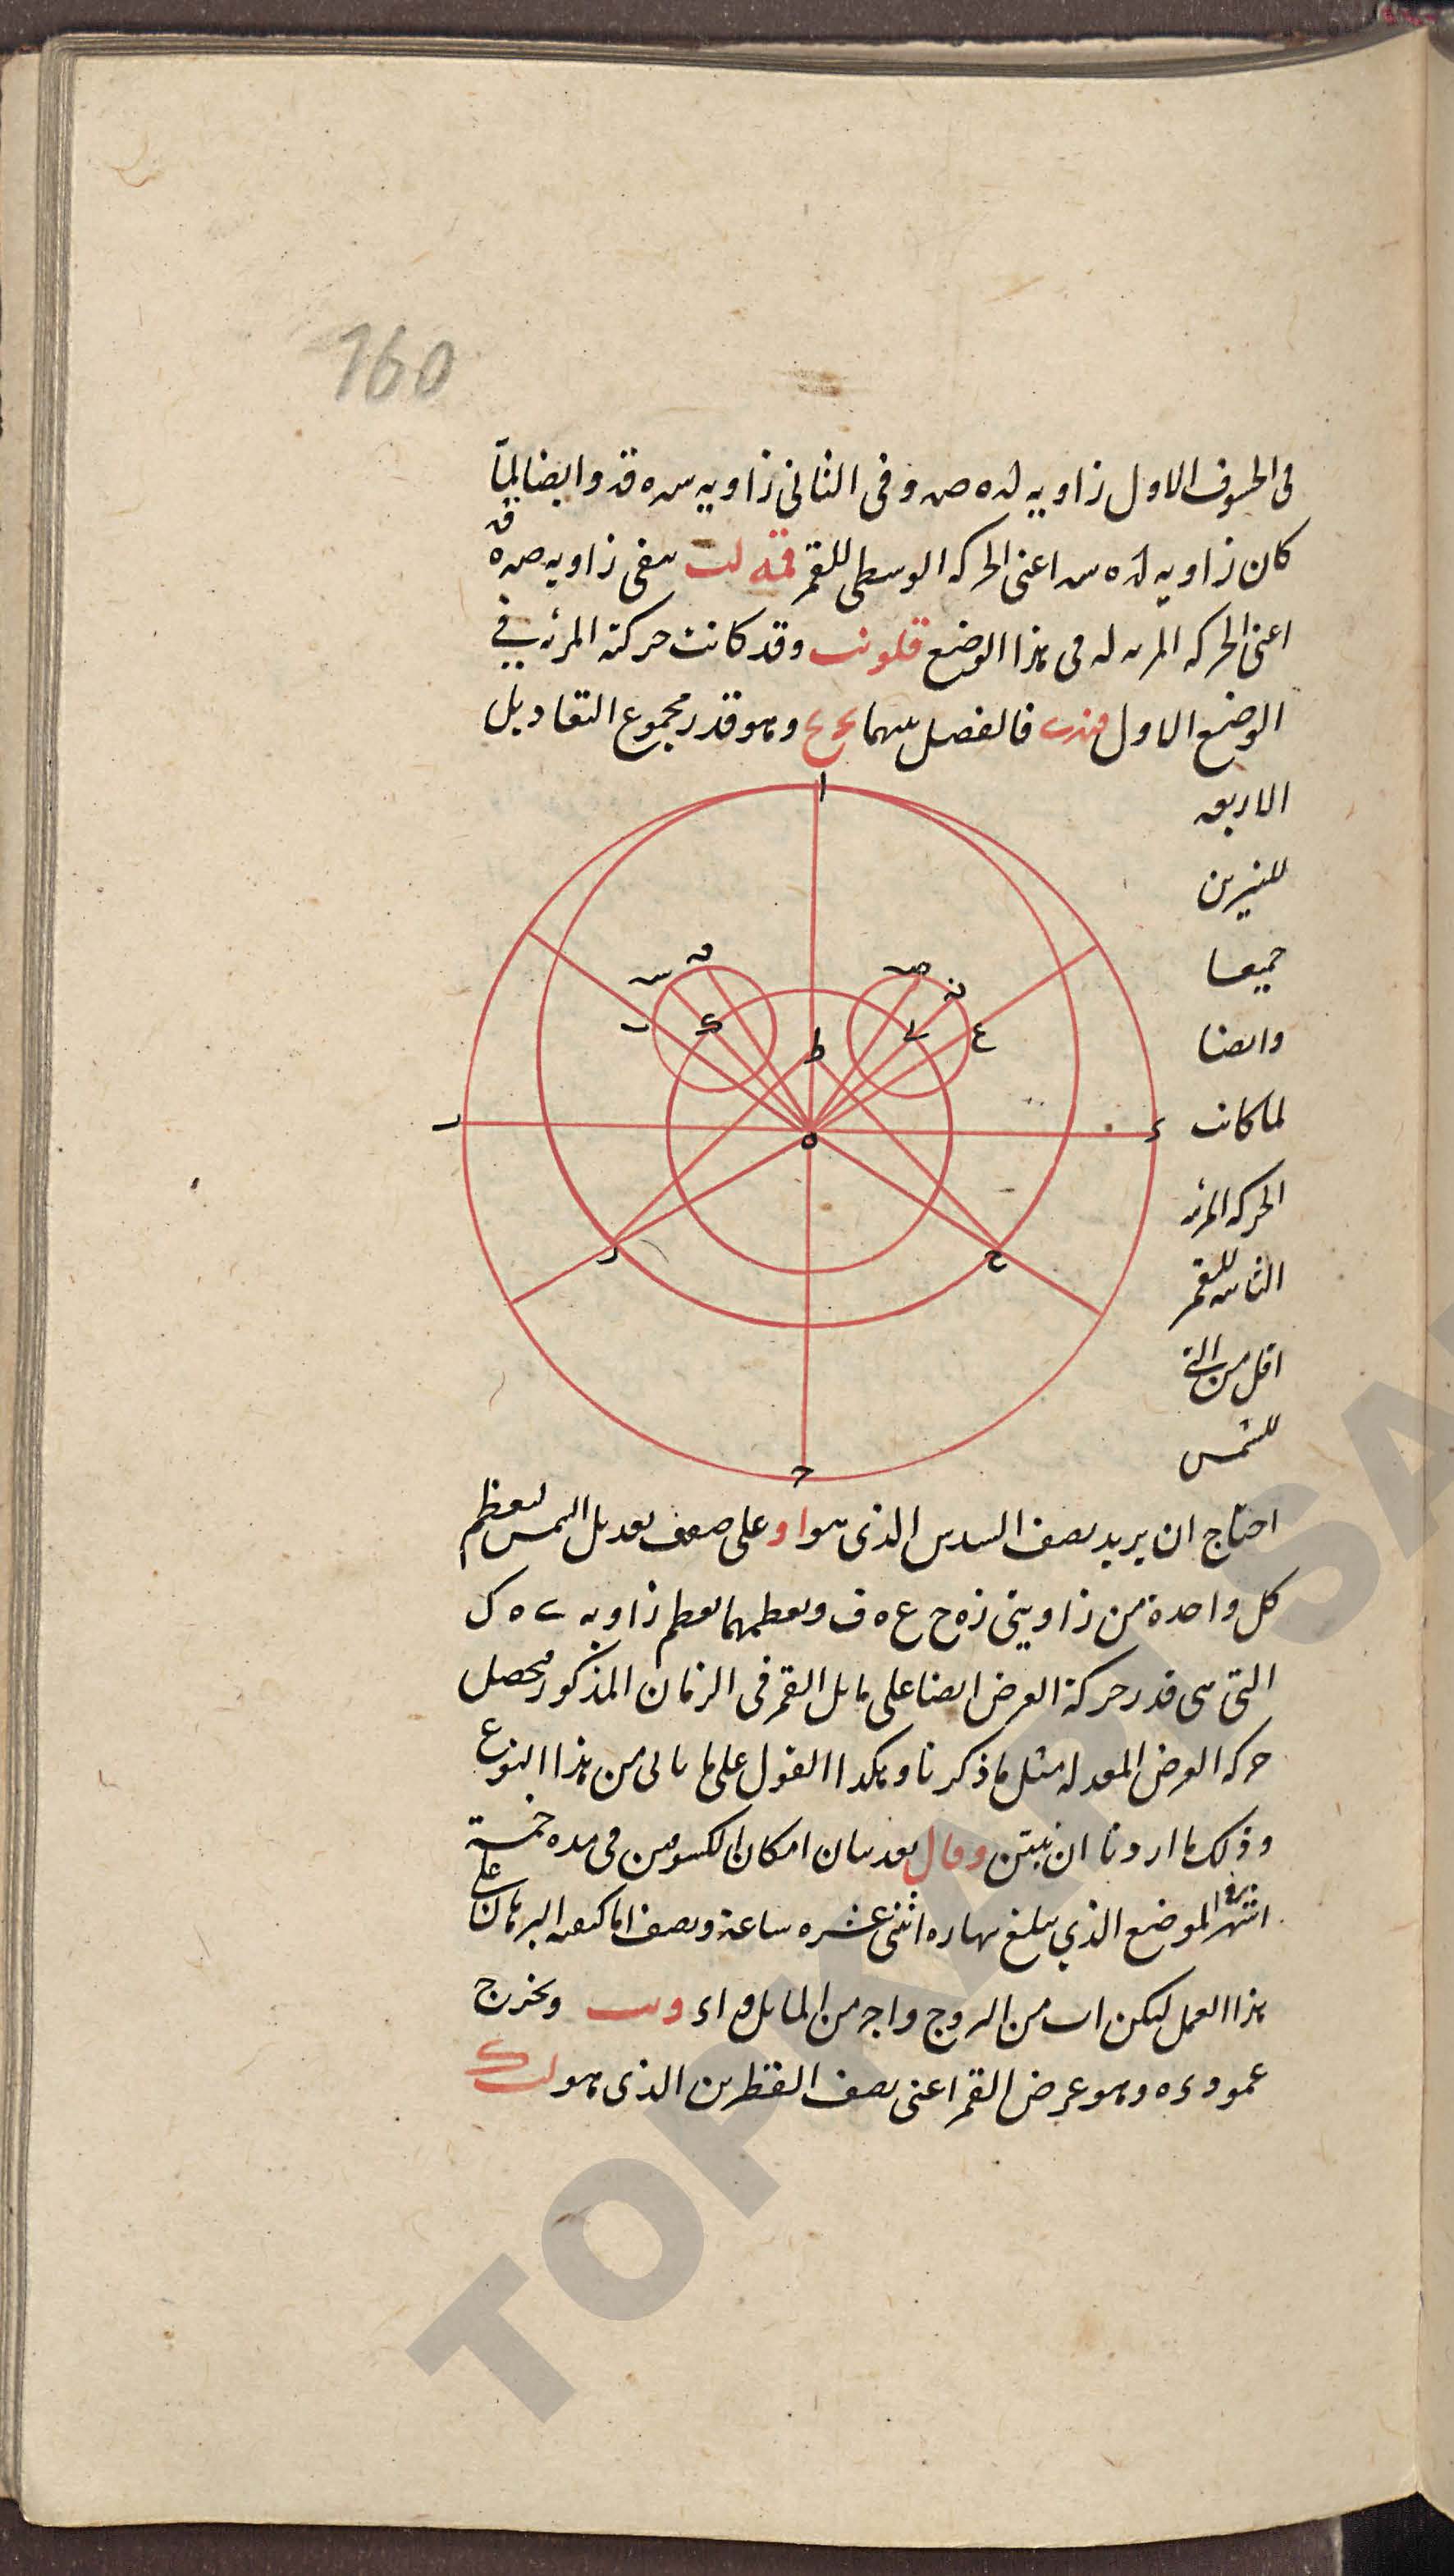 160
فى الخسوف الاول زاويه لہ ه صہ و فى الثانى زاويه سہ ه قہ و ايضا لما
كان زاويه لہ ه سہ اعنى الحركه الوسطى للقمر قمه لت سقى زاويه صہ ه ق
اعنى الحركه المرئيه له فى هذا الوضع قلو نب و قد كانت حركته المرئيه فى
الوضع الاول فالفصل بينهما ح ح و هو قدر مجموع التعاديل
الاربعه
للنيرين
جميعا
وايضا
لما كانت
الحركه المرئيه
الثانيه للقمر
اقل من التى
للشمس
ا
ق
س
ص
ن
ى
ك
ل
ع
ط
ب
ه
د
ز
ح
ج
احتاج ان يزيد نصف السدس الذى هو ا و على ضعف تعديل الشمس لتعظم
كل واحدة من زاويتى زه ح ع ه ف و بعظمهما تعظم زاويه ى ه ك
التى هى قدر حركة العرض ايضا على مايل القمر فى الزمان المذكور فتحصل
حركه العرض المعدله مثل ما ذكرنا و هكذا القول على ما ياتى من هذا النوع
و ذلك ما اردنا ان نبين و قال بعد بيان امكان الكسوفين فى مده خمسة
اشهر فى الموضع الذي يبلغ نهاره اثنى عشره ساعة و نصف اما كيفيه البرهان على
هذا العمل ليكن اب من البروج و اج من المايل و اء و نخرج
عمود ء ه و هو عرض القمر اعنى نصف القطرين الذى هو لك
TOPKAPI SA